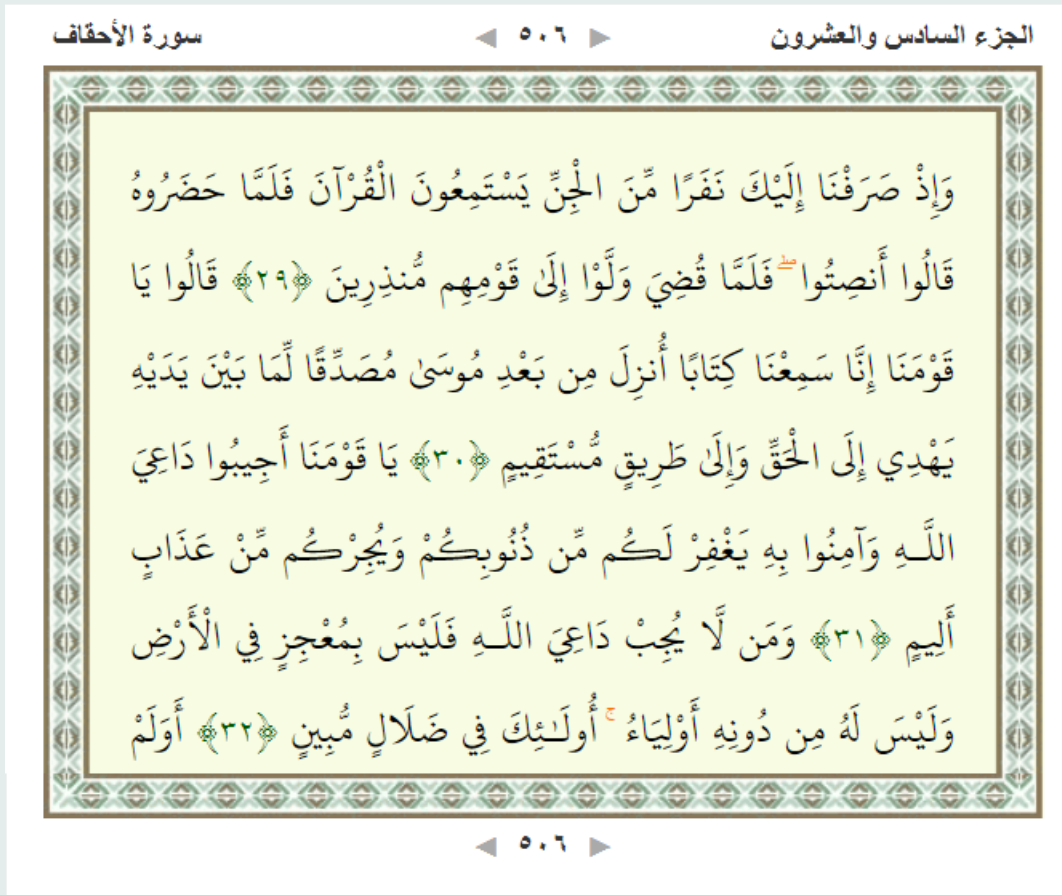 الجزء السادس والعشرون ◀ ٥٠٦ ▶ سورة الأحقاف
وَإِذْ صَرَفْنَا إِلَيْكَ نَفَرًا مِّنَ الْجِنِّ يَسْتَمِعُونَ الْقُرْآنَ فَلَمَّا حَضَرُوهُ
قَالُوا أَنصِتُوا ۖ فَلَمَّا قُضِيَ وَلَّوْا إِلَىٰ قَوْمِهِم مُّنذِرِينَ ﴿٢٩﴾ قَالُوا يَا
قَوْمَنَا إِنَّا سَمِعْنَا كِتَابًا أُنزِلَ مِن بَعْدِ مُوسَىٰ مُصَدِّقًا لِّمَا بَيْنَ يَدَيْهِ
يَهْدِي إِلَى الْحَقِّ وَإِلَىٰ طَرِيقٍ مُّسْتَقِيمٍ ﴿٣٠﴾ يَا قَوْمَنَا أَجِيبُوا دَاعِيَ
اللَّـهِ وَآمِنُوا بِهِ يَغْفِرْ لَكُم مِّن ذُنُوبِكُمْ وَيُجِرْكُم مِّنْ عَذَابٍ
أَلِيمٍ ﴿٣١﴾ وَمَن لَّا يُجِبْ دَاعِيَ اللَّـهِ فَلَيْسَ بِمُعْجِزٍ فِي الْأَرْضِ
وَلَيْسَ لَهُ مِن دُونِهِ أَوْلِيَاءُ ۚ أُولَـٰئِكَ فِي ضَلَالٍ مُّبِينٍ ﴿٣٢﴾ أَوَلَمْ
◀ ٥٠٦ ▶